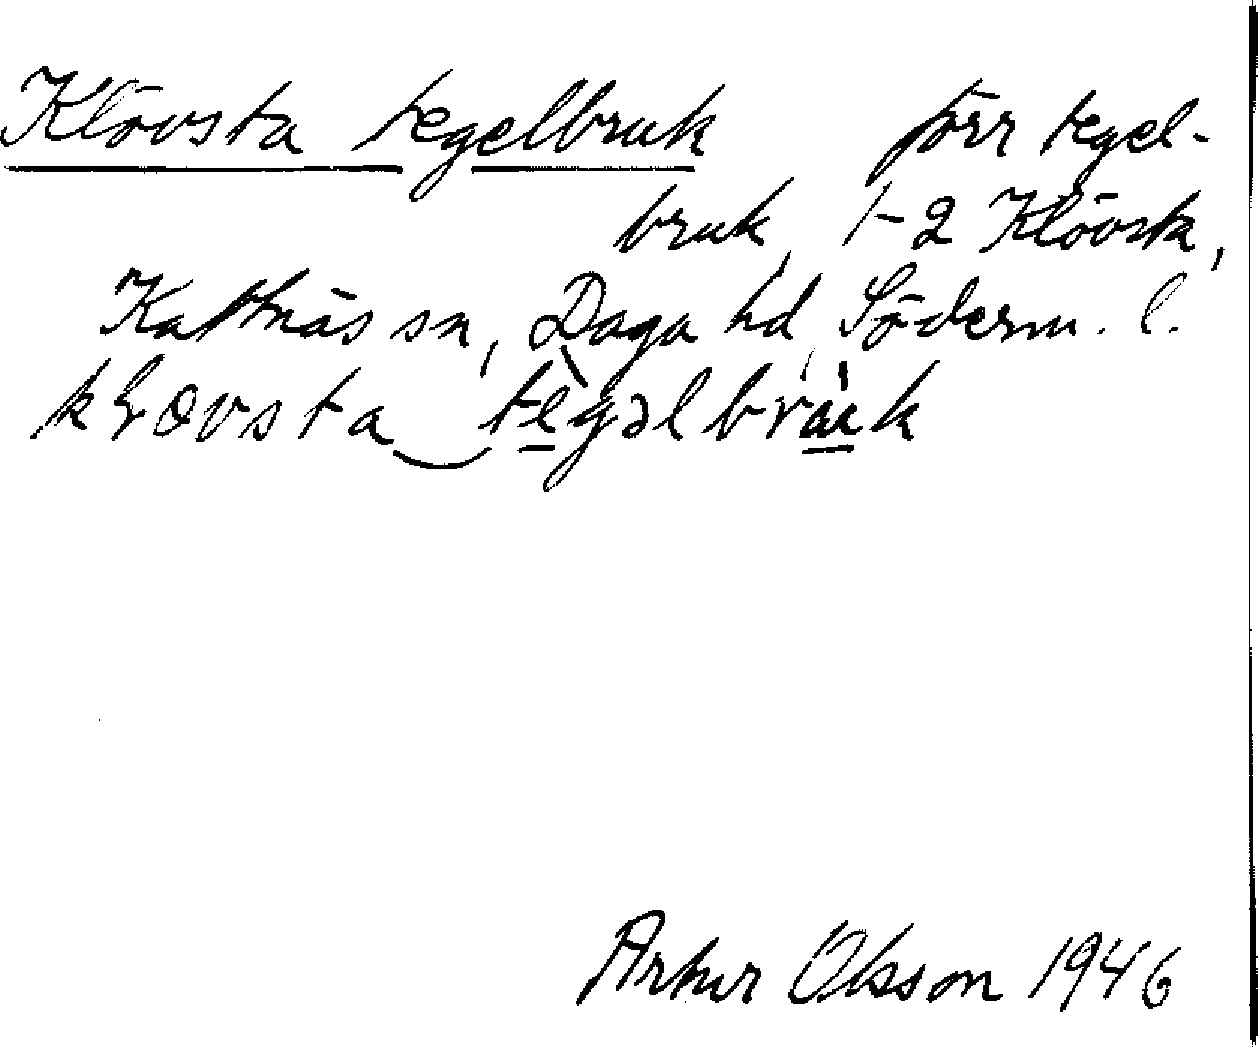 Klövsta tegelbruk förr tegel-
bruk, 1-2 Klövsta,
Kattnäs sn, Daga hd, Söderm. l.
Artur Olsson 1946